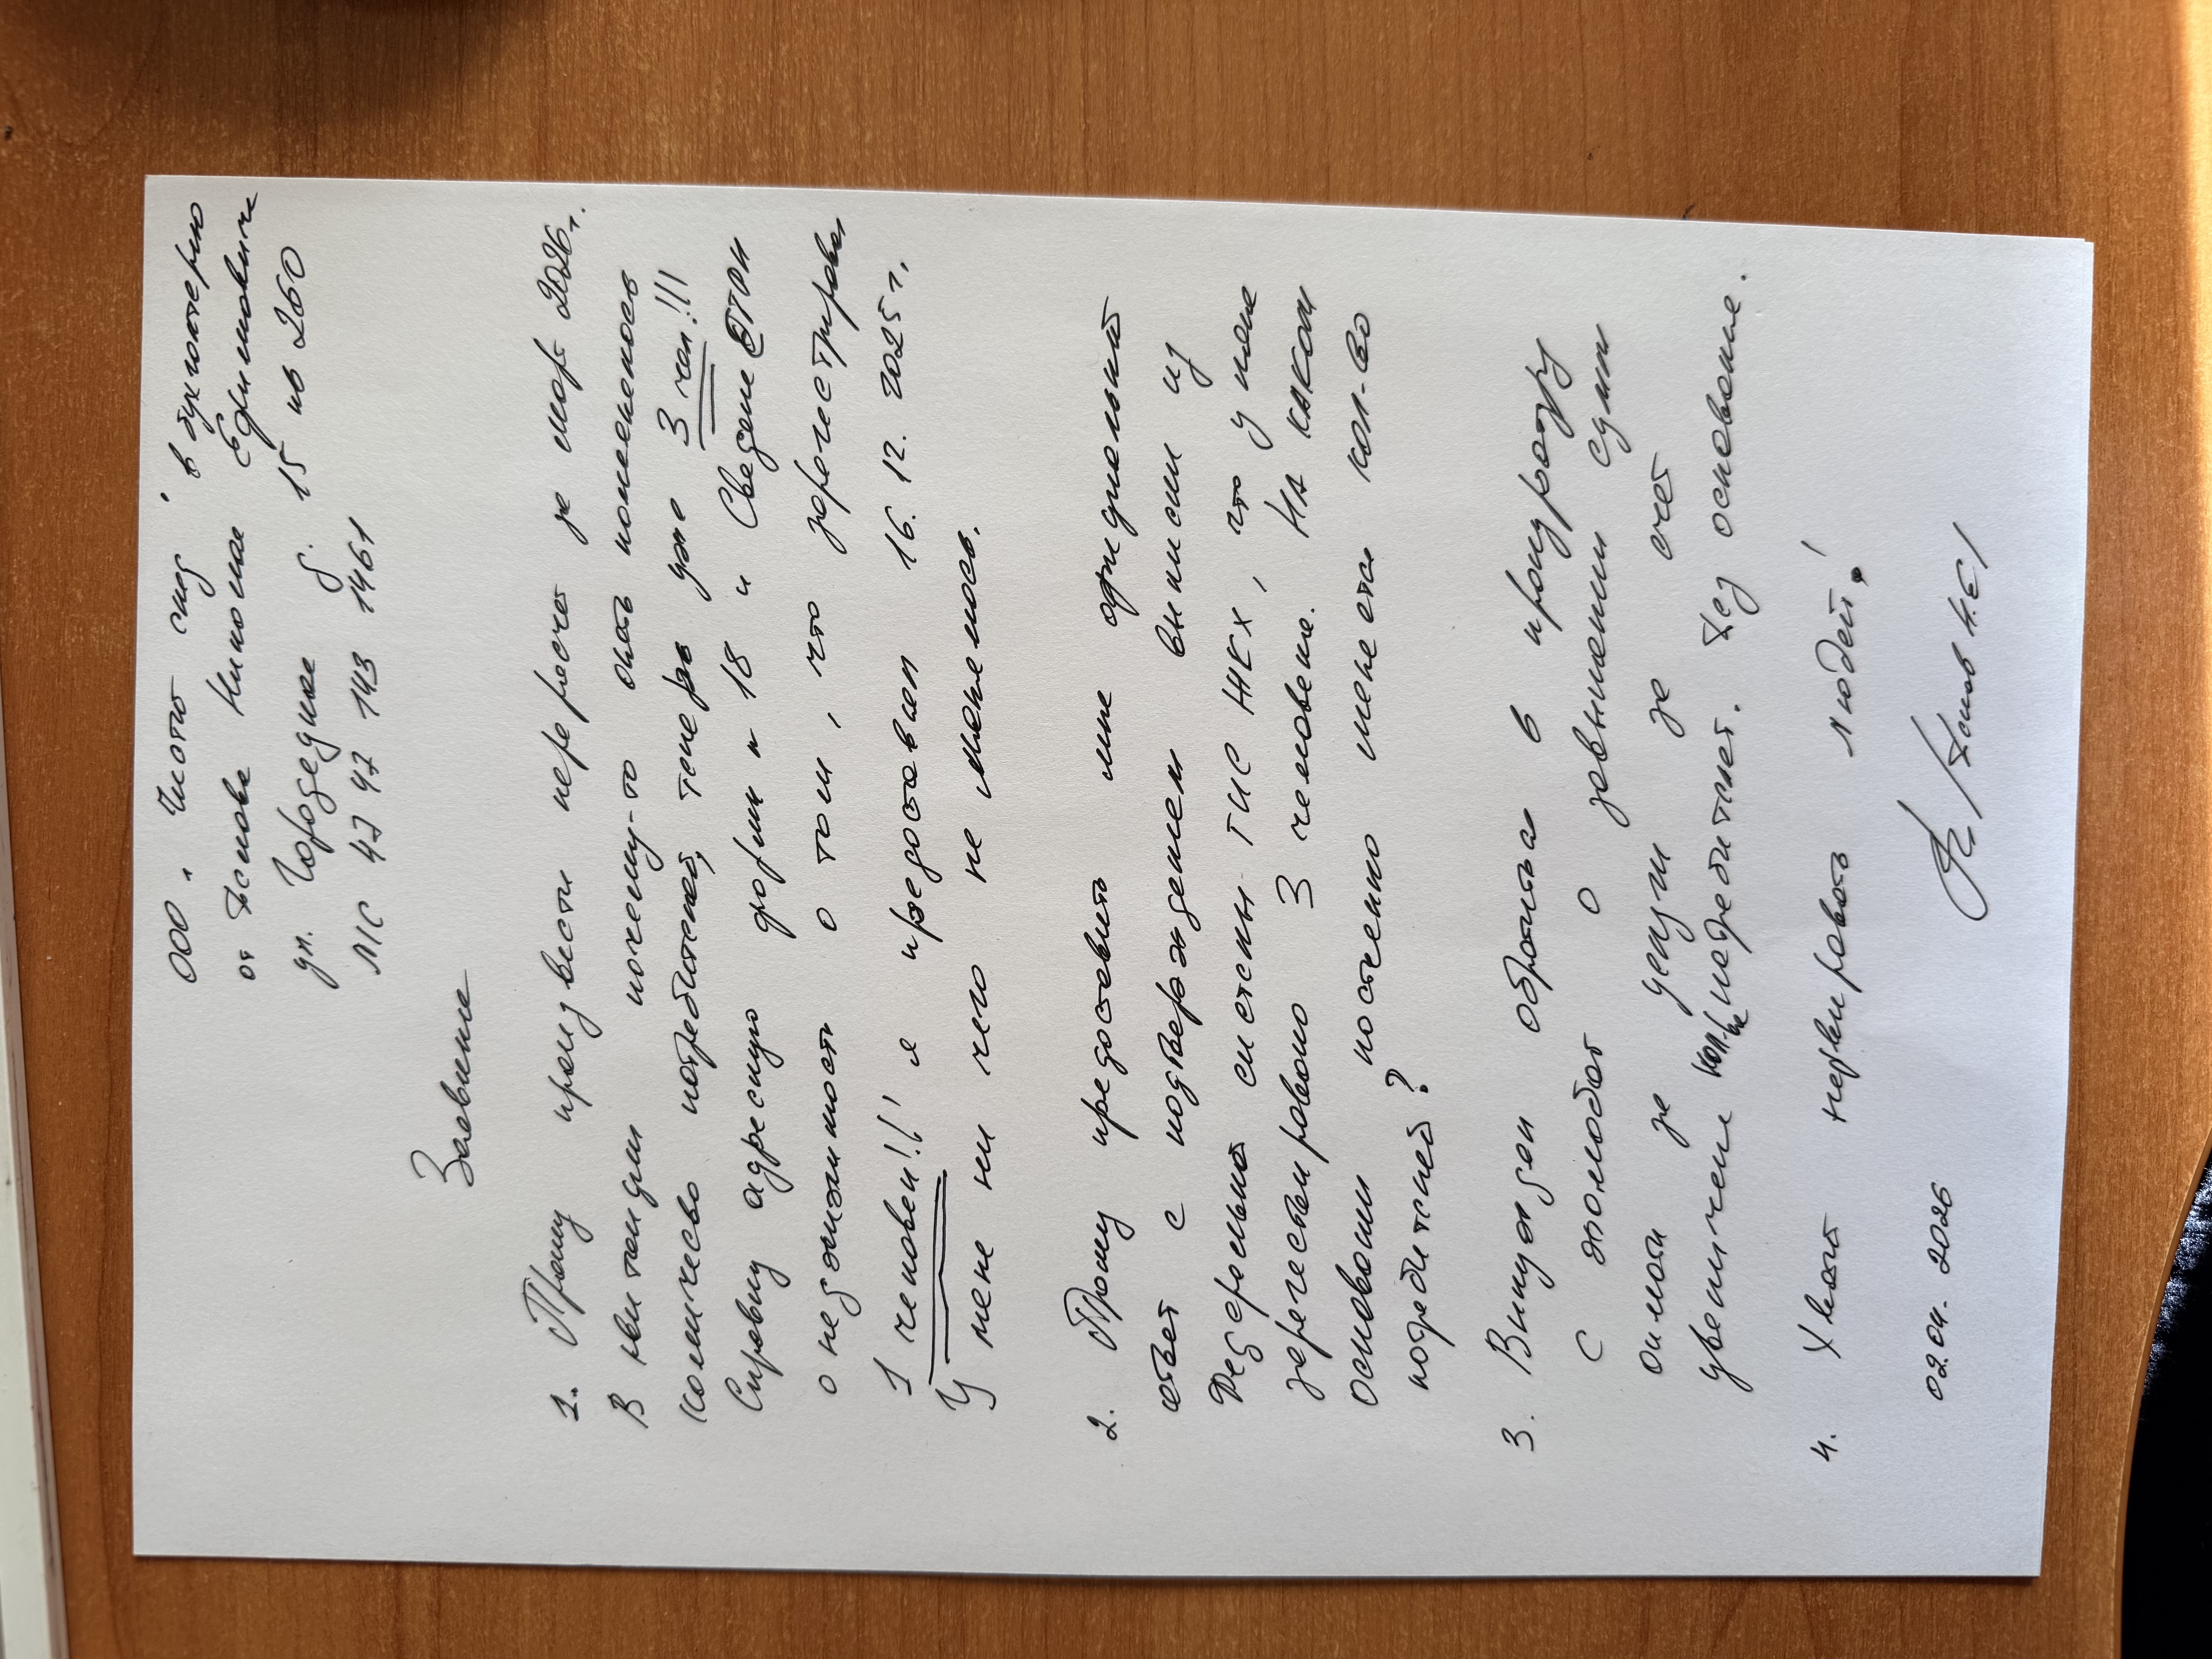 ООО "Чистый след" в бухгалтерию
от Аслова Николая Ефимовича
ул. Городецкая д. 15 кв 260
Л/С 47 47 143 1461
Заявление
1. Прошу произвести перерасчет за март 2026г.
В квитанции почему-то опять поменялось
количество потребителей, теперь уже 3 чел.!!!
Справку адресную форми № 18 и Сведение ЕГРН
о недвижимости о том, что зарегестрирован
1 человек!!! я предоставлял 16.12.2025г.
У меня ни чего не менялось.
2. Прошу предоставить мне официальный
ответ с подтверждением выписки из
Федеральной системы ГИС ЖКХ, что у меня
зарегестрировано 3 человека. НА КАКОМ
основании постоянно меняется кол-во
потребителей?
3. Вынужден обратится в прокуратуру
с жалобой о завышении сумм
оплаты за услуги за счет
увеличения кол-ва потребителей. без основания.
4. Хватит нервировать людей!
02.04.2026